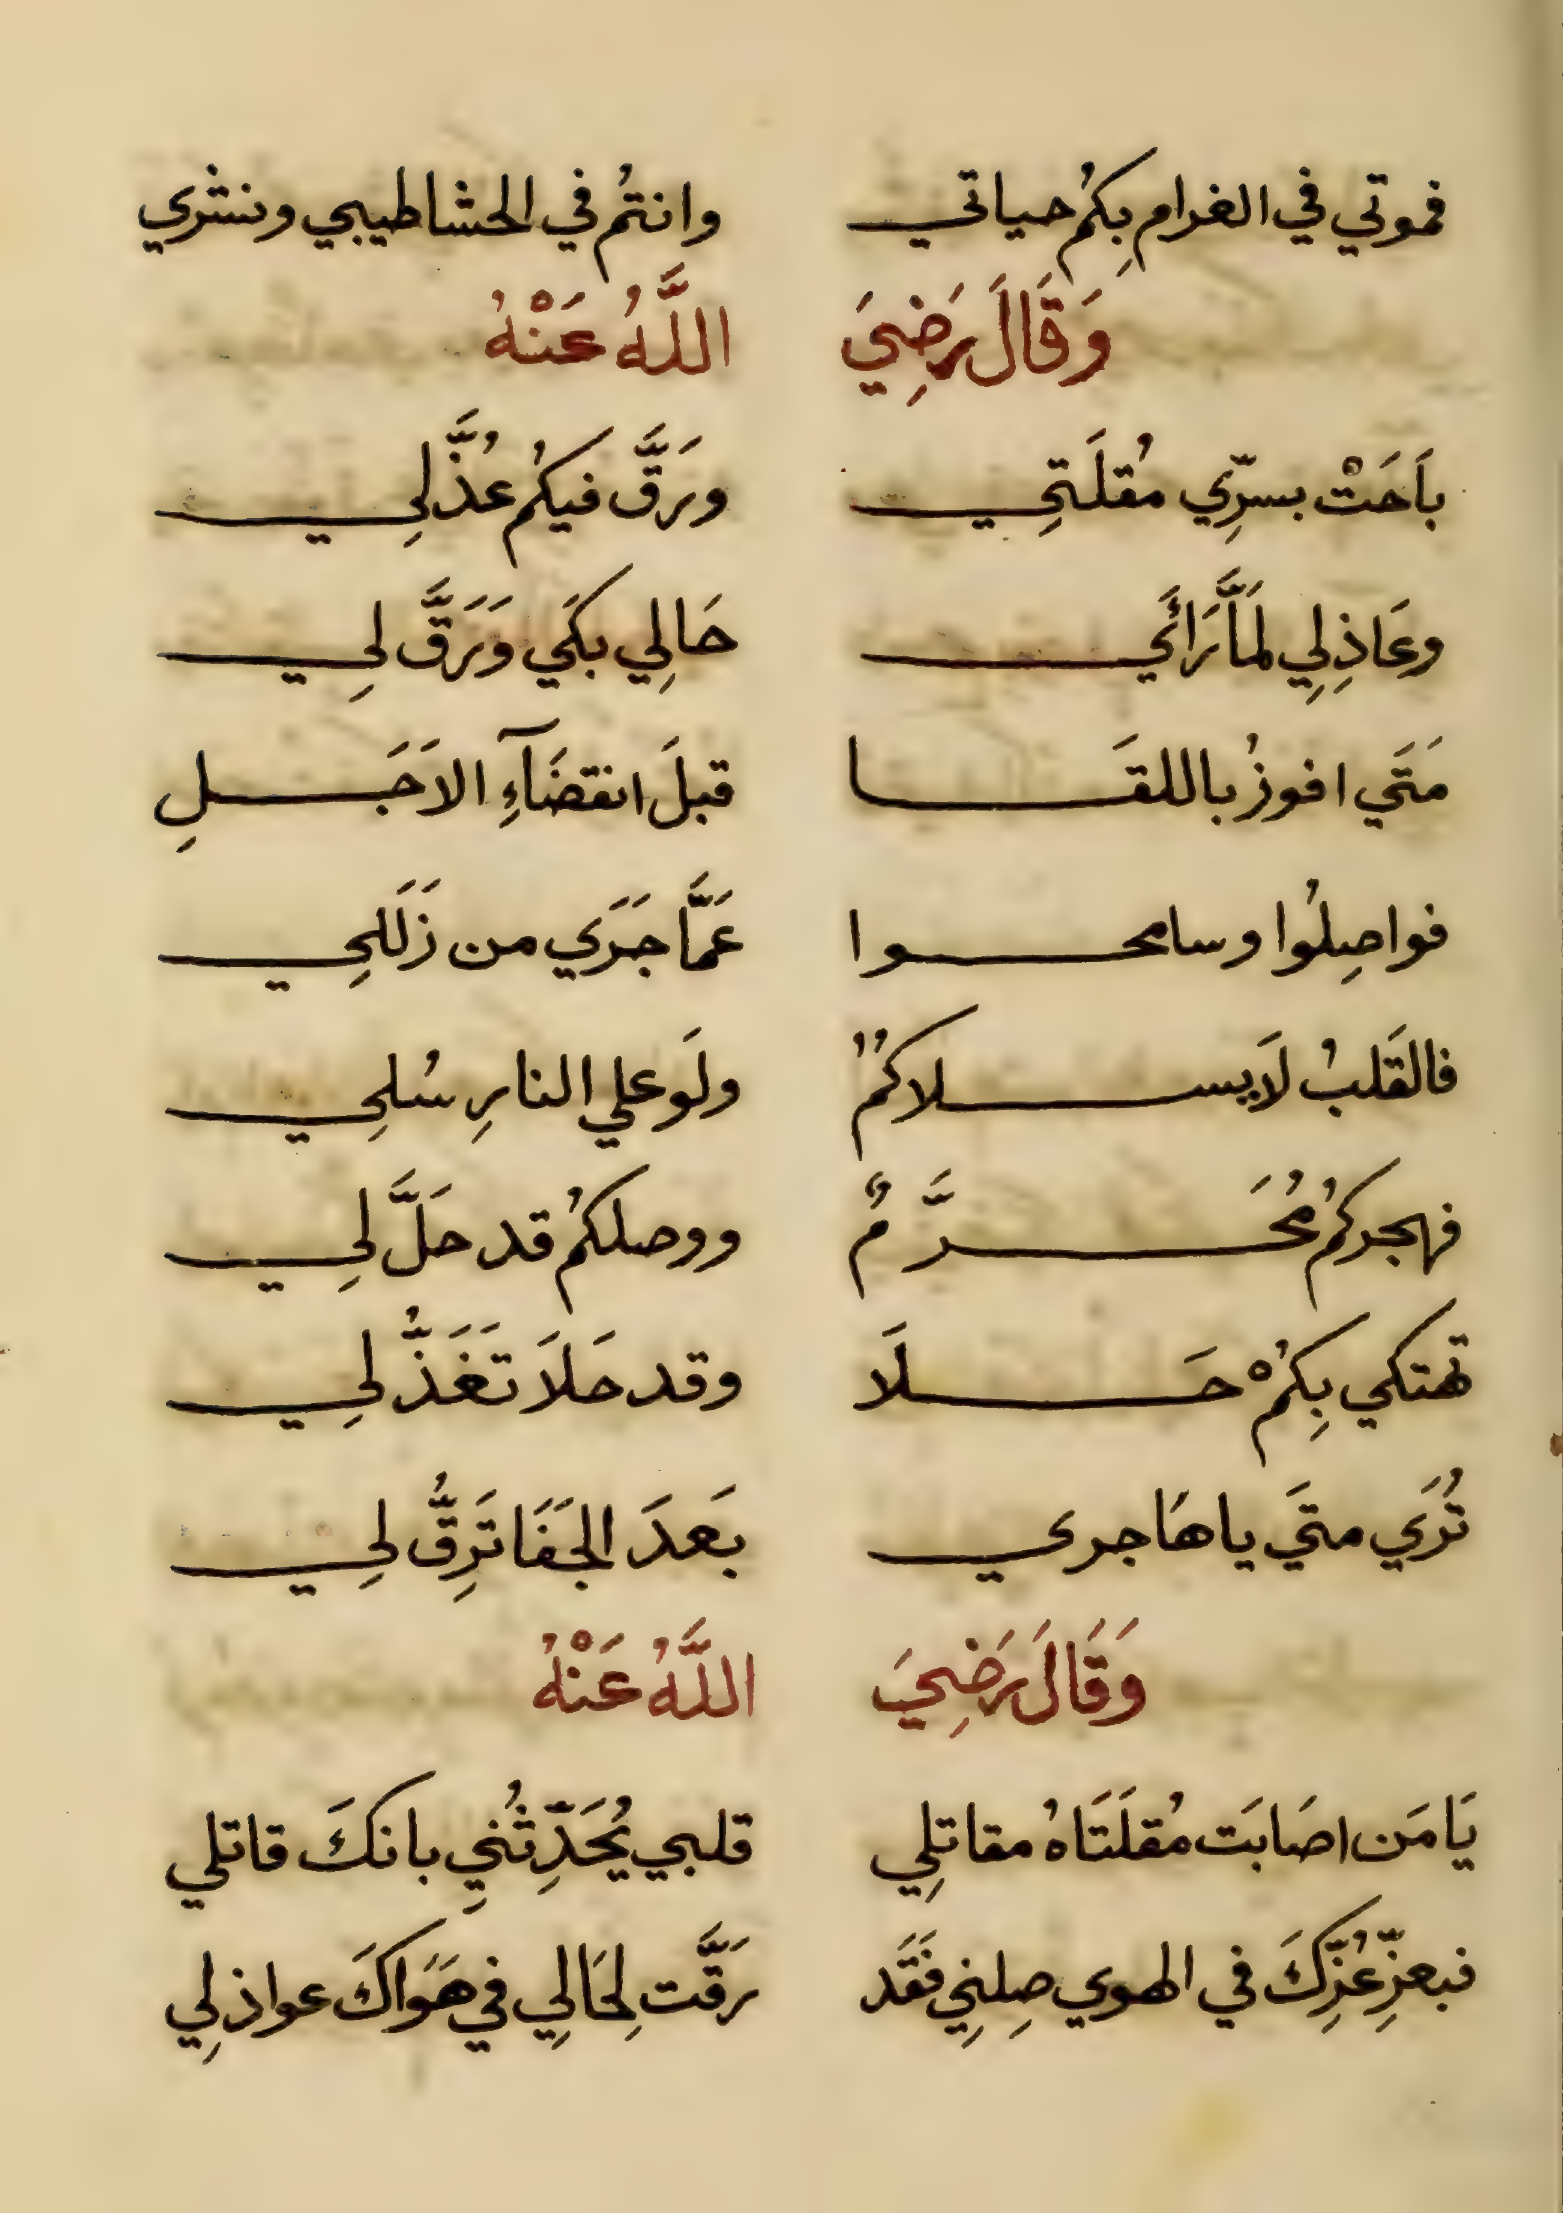 فموتي في الغرام بِكمُ حياتي وانتمُ في الحشا طيبي ونشري
وَقَالَ رَضِيَ اللَّهُ عَنْهُ
باَحَتْ بسرِّي مُقلَتِي ورَقَّ فيكمُ عُذَّلِي
وعَاذِلِي لمَّا رَائَي حَالِي بكَي وَرَقَّ لِي
مَتَي افوزُ باللقَا قبلَ انقضَآءِ الاَجَلِ
فواصِلُوا وسامحوا عَمَّا جَرَي من زَلَلِي
فالقَلبُ لاَ يسلاكمُ ولَو علي النارِ سُلِي
فهجركمُ مُحَرَّمٌ ووصلكمُ قد حَلَّ لِي
تهتكي بِكمُْ حَلَا وقد حَلاَ تَغَذُّلِي
تُرَي متَي ياهَاجري بَعدَ الجَفَا تَرِقُّ لِي
وَقَالَ رَضِيَ اللَّهُ عَنْهُ
يَا مَن اصَابَت مُقلَتَاهُ مقاتلِي قلبي يُحَدِّثُنِي بانكَ قاتلي
نبعزِّ عُزِّكَ في الهوي صِلنِي فَقَد رَقَّت لِحَالِي في هَوَاكَ عواذلِي